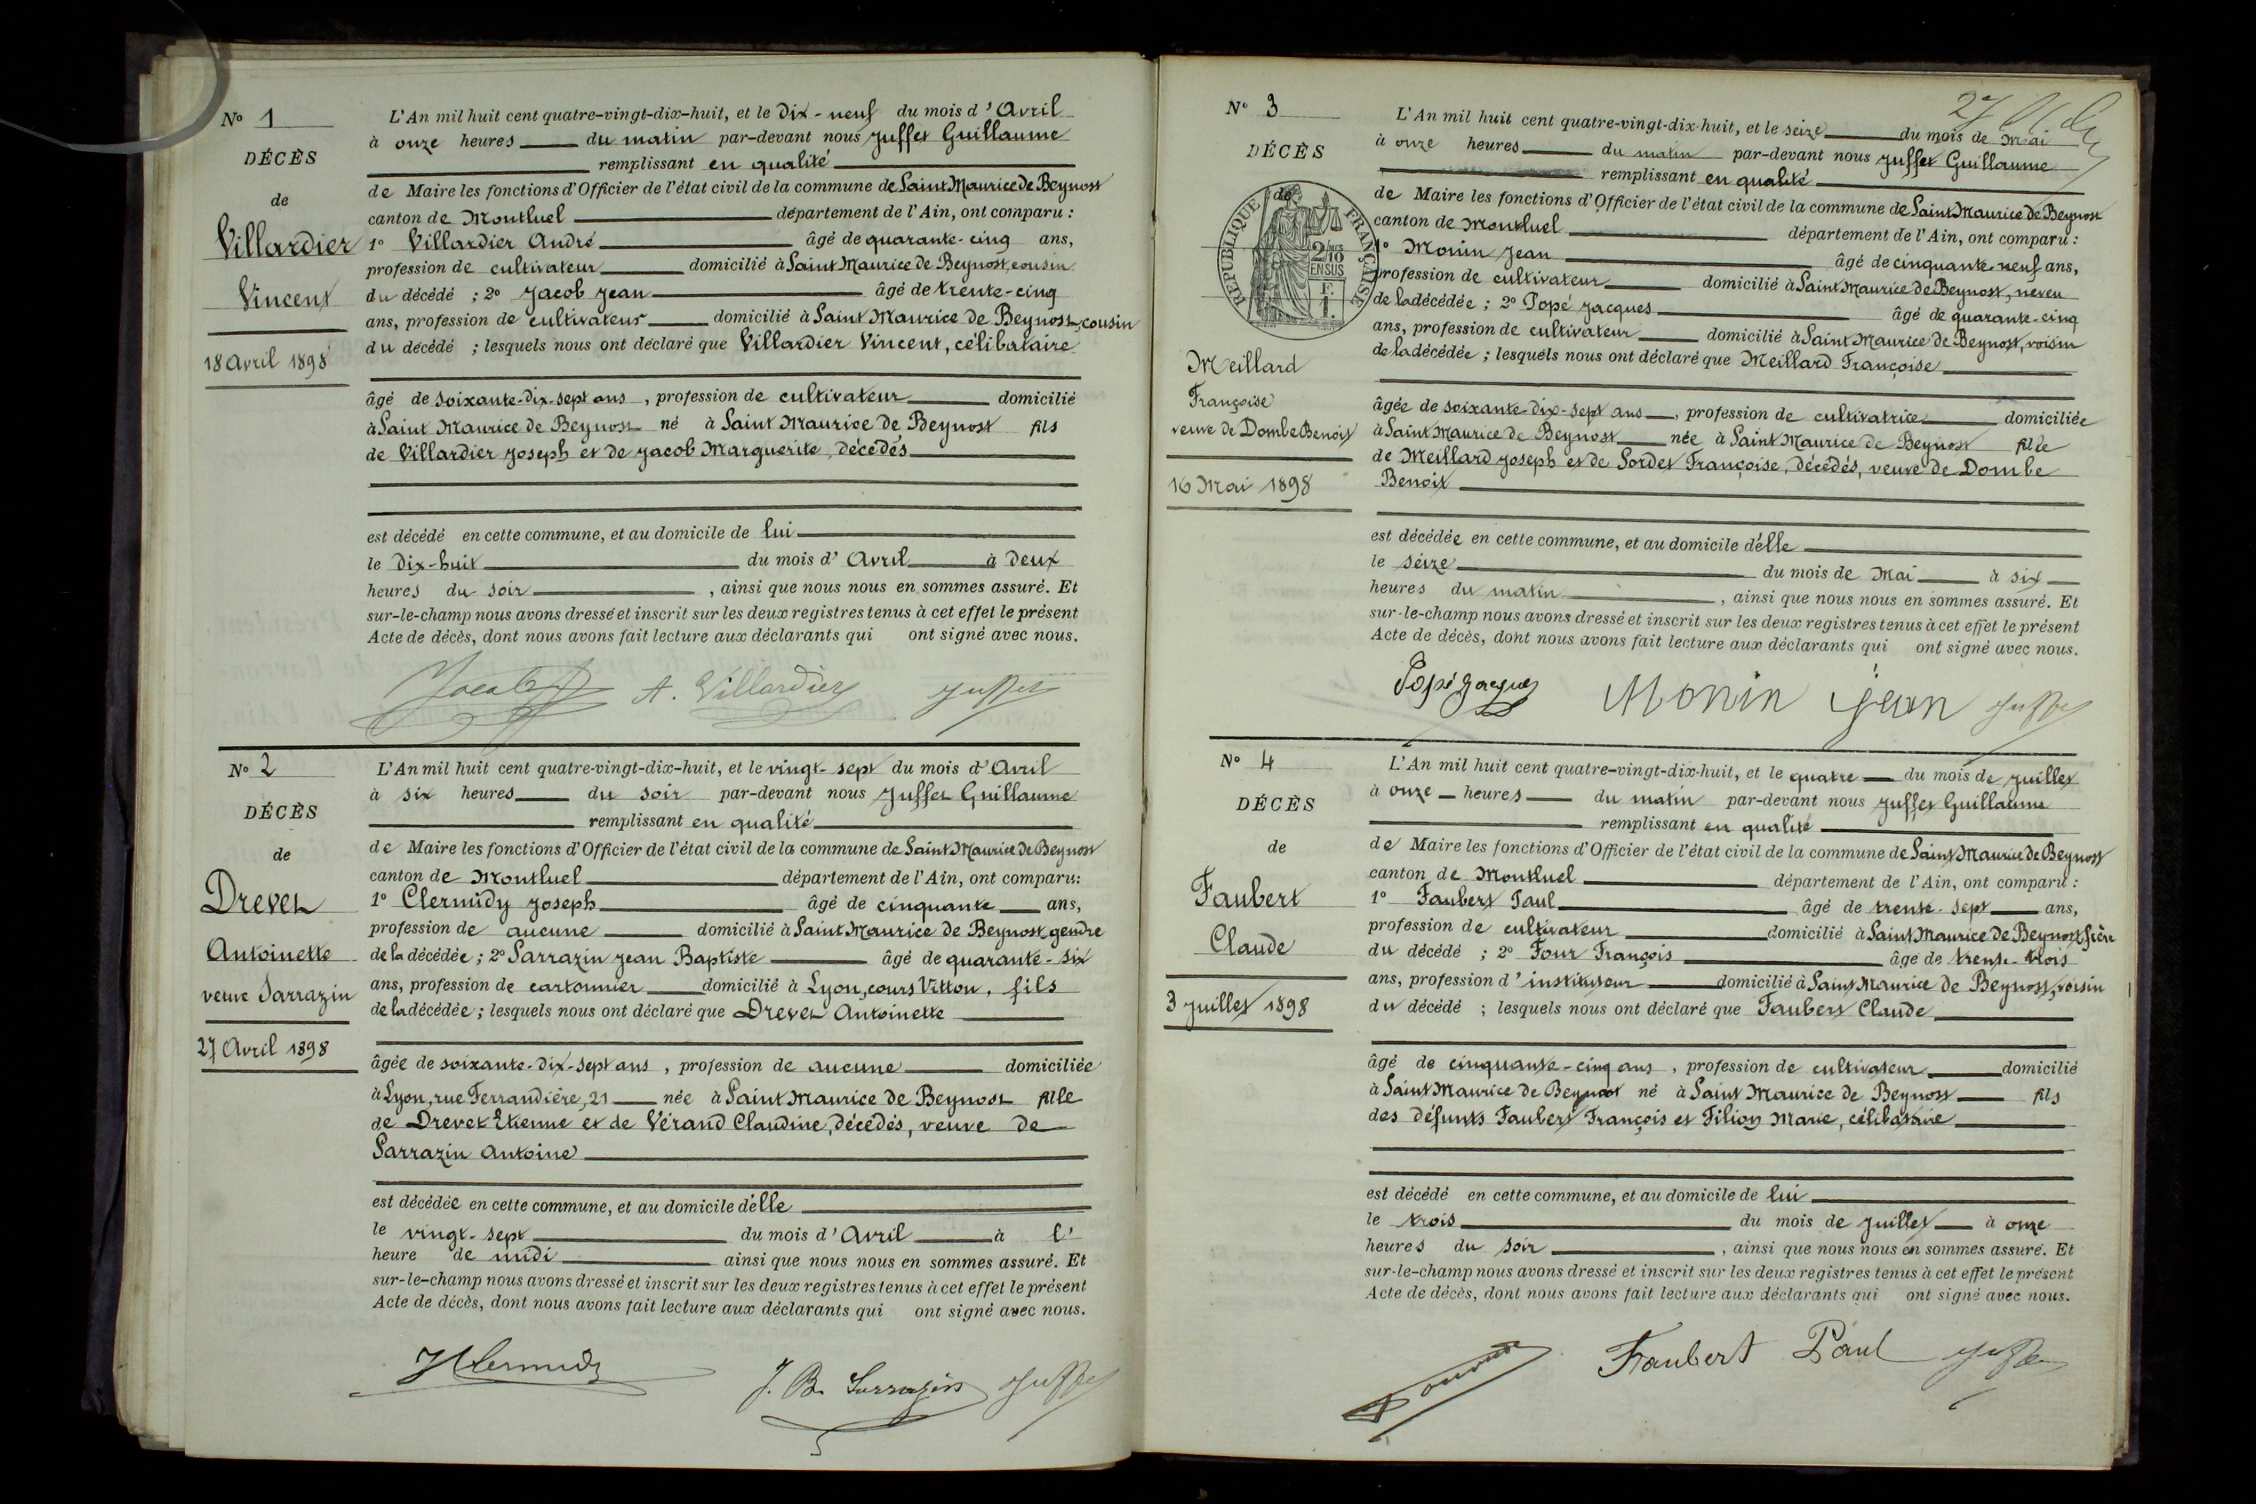 No 1
DÉCÈS
de
Villardier
Vincent
18 Avril 1898
L'An mil huit cent quatre-vingt-dix-huit, et le Dix-neuf du mois d'Avril
à onze heures du matin par-devant nous Juffet Guillaume
remplissant en qualité
de Maire les fonctions d'Officier de l'état civil de la commune de Saint Maurice de Beynost
canton de Montluel département de l'Ain, ont comparu :
1° Villardier André âgé de quarante-cinq ans,
profession de cultivateur domicilié à Saint Maurice de Beynost, cousin
du décédé ; 2° Jacob Jean âgé de trente-cinq
ans, profession de cultivateur domicilié à Saint Maurice de Beynost, cousin
du décédé ; lesquels nous ont déclaré que Villardier Vincent, célibataire
âgé de soixante-dix-sept ans, profession de cultivateur domicilié
à Saint Maurice de Beynost né à Saint Maurice de Beynost fils
de Villardier Joseph et de Jacob Marguerite, décédés
est décédé en cette commune, et au domicile de lui
le Dix-huit du mois d'Avril à Deux
heures du soir, ainsi que nous nous en sommes assuré. Et
sur-le-champ nous avons dressé et inscrit sur les deux registres tenus à cet effet le présent
Acte de décès, dont nous avons fait lecture aux déclarants qui ont signé avec nous.
Jacob A. Villardier Juffet
No 2
DÉCÈS
de
Drevet
Antoinette
veuve Sarrazin
27 Avril 1898
L'An mil huit cent quatre-vingt-dix-huit, et le vingt-sept du mois d'Avril
à six heures du soir par-devant nous Juffet Guillaume
remplissant en qualité
de Maire les fonctions d'Officier de l'état civil de la commune de Saint Maurice de Beynost
canton de Montluel département de l'Ain, ont comparu:
1° Clermidy Joseph âgé de cinquante ans,
profession de aucune domicilié à Saint Maurice de Beynost, gendre
de la décédée ; 2° Sarrazin Jean Baptiste âgé de quarante-six
ans, profession de cartonnier domicilié à Lyon, cours Vitton, fils
de la décédée ; lesquels nous ont déclaré que Drevet Antoinette
âgée de soixante-dix-sept ans, profession de aucune domiciliée
à Lyon, rue Ferrandière, 21 née à Saint Maurice de Beynost fille
de Drevet Etienne et de Vérand Claudine, décédés, veuve de
Sarrazin Antoine
est décédée en cette commune, et au domicile d'elle
le vingt-sept du mois d'Avril à l'
heure de midi ainsi que nous nous en sommes assuré. Et
sur-le-champ nous avons dressé et inscrit sur les deux registres tenus à cet effet le présent
Acte de décès, dont nous avons fait lecture aux déclarants qui ont signé avec nous.
J Clermidy J. B. Sarrazin Juffet
No 3
DÉCÈS
de
RÉPUBLIQUE FRANÇAISE
2/10
EN SUS
F.
1.
Meillard
Françoise
veuve de Dombe Benoit
16 Mai 1898
27
L'An mil huit cent quatre-vingt-dix-huit, et le seize du mois de Mai
à onze heures du matin par-devant nous Juffet Guillaume
remplissant en qualité
de Maire les fonctions d'Officier de l'état civil de la commune de Saint Maurice de Beynost
canton de Montluel département de l'Ain, ont comparu :
1° Monin Jean âgé de cinquante-neuf ans,
profession de cultivateur domicilié à Saint Maurice de Beynost, neveu
de la décédée ; 2° Popé Jacques âgé de quarante-cinq
ans, profession de cultivateur domicilié à Saint Maurice de Beynost, voisin
de la décédée ; lesquels nous ont déclaré que Meillard Françoise
âgée de soixante-dix-sept ans, profession de cultivatrice domiciliée
à Saint Maurice de Beynost née à Saint Maurice de Beynost fille
de Meillard Joseph et de Sordet Françoise, décédés, veuve de Dombe
Benoit
est décédée en cette commune, et au domicile d'elle
le seize du mois de Mai à six
heures du matin, ainsi que nous nous en sommes assuré. Et
sur-le-champ nous avons dressé et inscrit sur les deux registres tenus à cet effet le présent
Acte de décès, dont nous avons fait lecture aux déclarants qui ont signé avec nous.
Popé Jacques Monin Jean Juffet
No 4
DÉCÈS
de
Faubert
Claude
3 Juillet 1898
L'An mil huit cent quatre-vingt-dix-huit, et le quatre du mois de Juillet
à onze heures du matin par-devant nous Juffet Guillaume
remplissant en qualité
de Maire les fonctions d'Officier de l'état civil de la commune de Saint Maurice de Beynost
canton de Montluel département de l'Ain, ont comparu :
1° Faubert Paul âgé de trente-sept ans,
profession de cultivateur domicilié à Saint Maurice de Beynost, frère
du décédé ; 2° Four François âgé de trente-trois
ans, profession d'instituteur domicilié à Saint Maurice de Beynost, voisin
du décédé ; lesquels nous ont déclaré que Faubert Claude
âgé de cinquante-cinq ans, profession de cultivateur domicilié
à Saint Maurice de Beynost né à Saint Maurice de Beynost fils
des défunts Faubert François et Filion Marie, célibataire
est décédé en cette commune, et au domicile de lui
le trois du mois de Juillet à onze
heures du soir, ainsi que nous nous en sommes assuré. Et
sur-le-champ nous avons dressé et inscrit sur les deux registres tenus à cet effet le présent
Acte de décès, dont nous avons fait lecture aux déclarants qui ont signé avec nous.
Faubert Paul Juffet